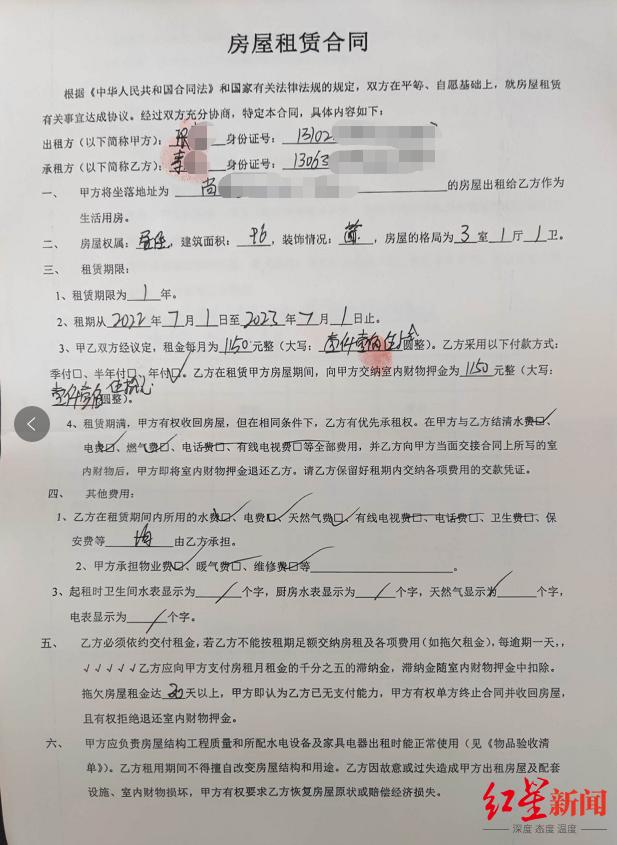 房屋租赁合同
根据《中华人民共和国合同法》和国家有关法律法规的规定，双方在平等、自愿基础上，就房屋租赁
有关事宜达成协议。经过双方充分协商，特定本合同，具体内容如下：
出租方（以下简称甲方）： 身份证号：13102
承租方（以下简称乙方）：李 身份证号：13063
一、 甲方将坐落地址为 尚 的房屋出租给乙方作为
生活用房。
二、 房屋权属：，建筑面积：96，装饰情况：简，房屋的格局为3室1厅1卫。
三、 租赁期限：
1、租赁期限为1年。
2、租期从2022年7月1日至2023年7月1日止。
3、甲乙双方经议定，租金每月为1150元整（大写：壹仟壹佰伍拾圆整）。乙方采用以下付款方式：
季付口、半年付口、年付口。乙方在租赁甲方房屋期间，向甲方交纳室内财物押金为1150元整（大写：
壹仟壹佰伍拾圆整）。
4、租赁期满，甲方有权收回房屋，但在相同条件下，乙方有优先承租权。在甲方与乙方结清水费口、
电费口、燃气费口、电话费口、有线电视费口等全部费用，并乙方向甲方当面交接合同上所写的室
内财物后，甲方即将室内财物押金退还乙方。请乙方保留好租期内交纳各项费用的交款凭证。
四、 其他费用：
1、乙方在租赁期间内所用的水费口、电费口、天然气费口、有线电视费口、电话费口、卫生费口、保
安费等 均 由乙方承担。
2、甲方承担物业费口、暖气费口、维修费口等 。
3、起租时卫生间水表显示为 / 个字，厨房水表显示为 / 个字，天然气显示为 / 个字，
电表显示为 / 个字。
五、 乙方必须依约交付租金，若乙方不能按租期足额交纳房租及各项费用（如拖欠租金），每逾期一天，，
√√√√√乙方应向甲方支付房租月租金的千分之五的滞纳金，滞纳金随室内财物押金中扣除。
拖欠房屋租金达20天以上，甲方即认为乙方已无支付能力，甲方有权单方终止合同并收回房屋，
且有权拒绝退还室内财物押金。
六、 甲方应负责房屋结构工程质量和所配水电设备及家具电器出租时能正常使用（见《物品验收清
单》）。乙方租用期间不得擅自改变房屋结构和用途。乙方因故意或过失造成甲方出租房屋及配套
设施、室内财物损坏，甲方有权要求乙方恢复房屋原状或赔偿经济损失。
红星新闻
深度 态度 温度